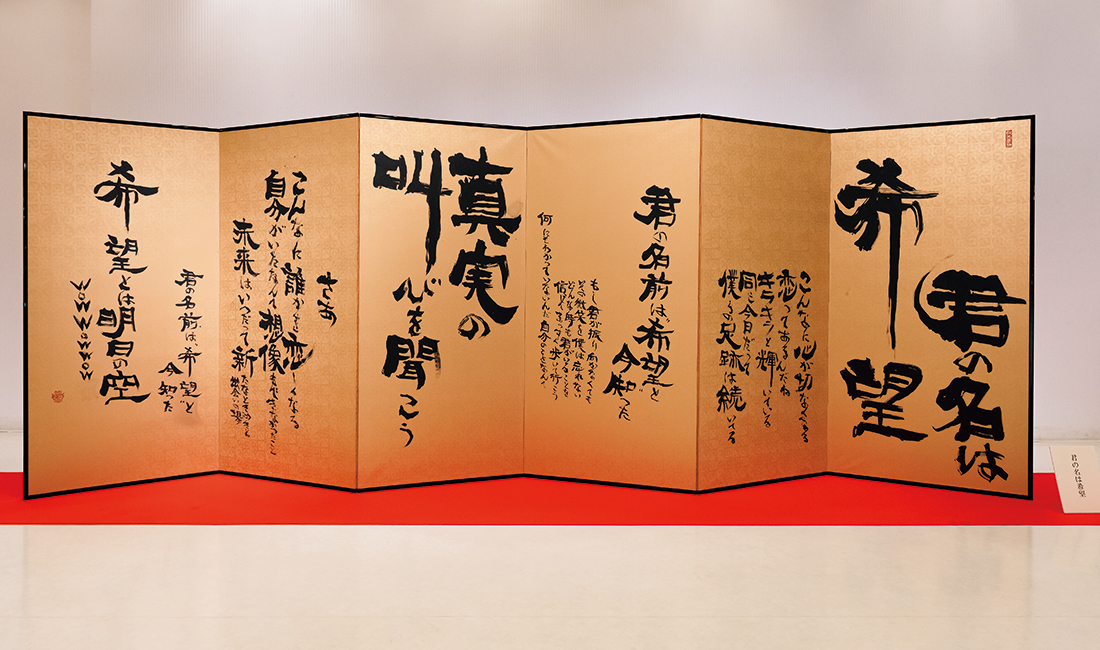 君の名は
希望
こんなに心が切なくなる
恋ってあるんだね
キラキラと輝いている
同じ今日だって
僕らの足跡は続いてる
君の名前は“希望”と
今 知った
もし君が振り向かなくても
その微笑みを僕は忘れない
どんな時も君がいることを
信じて まっすぐ歩いて行こう
何にもわかっていないんだ 自分のことなんて
真実の
叫びを聞こう
さあ
こんなに誰かを恋しくなる
自分がいたなんて想像もできなかったこと
未来はいつだって新たなときめきと
出会いの場
君の名前は、希望と
今 知った
希望とは明日の空
WOW WOW WOW
君の名は希望